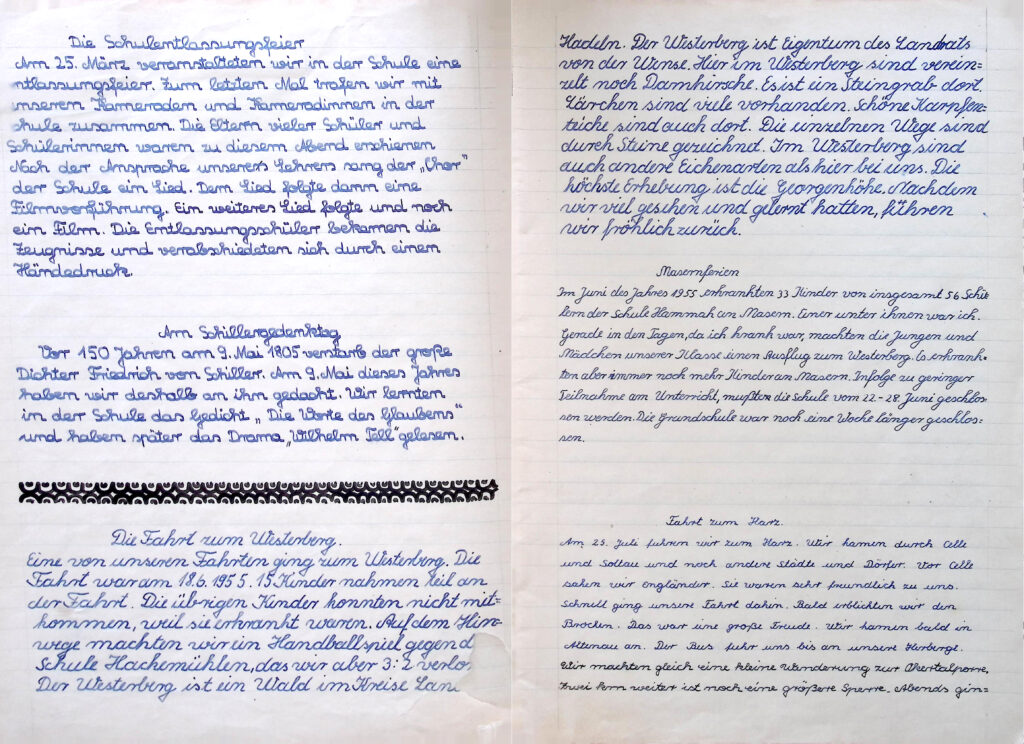 Die Schulentlassungsfeier
Am 25. März veranstalteten wir in der Schule eine
ntlassungsfeier. Zum letzten Mal trafen wir mit
unseren Kameraden und Kameradinnen in der
chule zusammen. Die Eltern vieler Schüler und
Schülerinnen waren zu diesem Abend erschienen
Nach der Ansprache unseres Lehrers sang der „Chor"
der Schule ein Lied. Dem Lied folgte dann eine
Filmvorführung. Ein weiteres Lied folgte und noch
ein Film. Die Entlassungsschüler bekamen die
Zeugnisse und verabschiedeten sich durch einen
Händedruck.
Am Schillergedenktag
Vor 150 Jahren am 9. Mai 1805 verstarb der große
Dichter Friedrich von Schiller. Am 9. Mai dieses Jahres
haben wir deshalb an ihn gedacht. Wir lernten
in der Schule das Gedicht „Die Worte des Glaubens"
und haben später das Drama „Wilhelm Tell" gelesen.
Die Fahrt zum Westerberg.
Eine von unseren Fahrten ging zum Westerberg. Die
Fahrt war am 18.6.1955. 15 Kinder nahmen teil an
der Fahrt. Die übrigen Kinder konnten nicht mit=
kommen, weil sie erkrankt waren. Auf dem Hin=
wege machten wir ein Handballspiel gegen d
Schule Hackemühlen, das wir aber 3:2 verlo
Der Westerberg ist ein Wald im Kreise Lan
Hadeln. Der Westerberg ist Eigentum des Landrats
von der Wense. Hier im Westerberg sind verein=
zelt noch Damhirsche. Es ist ein Steingrab dort.
Lärchen sind viele vorhanden. Schöne Karpfen=
teiche sind auch dort. Die einzelnen Wege sind
durch Steine gezeichnet. Im Westerberg sind
auch andere Eichenarten als hier bei uns. Die
höchste Erhebung ist die Georgenhöhe. Nachdem
wir viel gesehen und gelernt hatten, führen
wir fröhlich zurück.
Masernferien
Im Juni des Jahres 1955 erkrankten 33 Kinder von insgesamt 56 Schü
lern der Schule Hammah an Masern. Einer unter ihnen war ich.
Gerade in den Tagen, da ich krank war, machten die Jungen und
Mädchen unserer Klasse einen Ausflug zum Westerberg. Es erkrank=
ten aber immer noch mehr Kinder an Masern. Infolge zu geringer
Teilnahme am Unterricht, mußten die Schule vom 22-28. Juni geschlos
sen werden. Die Grundschule war noch eine Woche länger geschlos=
sen.
Fahrt zum Harz.
Am 25. Juli fuhren wir zum Harz. Wir kamen durch Celle
und Soltau und noch andere Städte und Dörfer. Vor Celle
sahen wir engländer. Sie waren sehr freundlich zu uns.
Schnell ging unsere Fahrt dahin. Bald erblickten wir den
Brocken. Das war eine große Freude. Wir kamen bald in
Altenau an. Der Bus fuhr uns bis an unsere Herberge.
Wir machten gleich eine kleine Wanderung zur Okertalsperre,
Zwei km weiter ist noch eine größere Sperre. Abends gin=